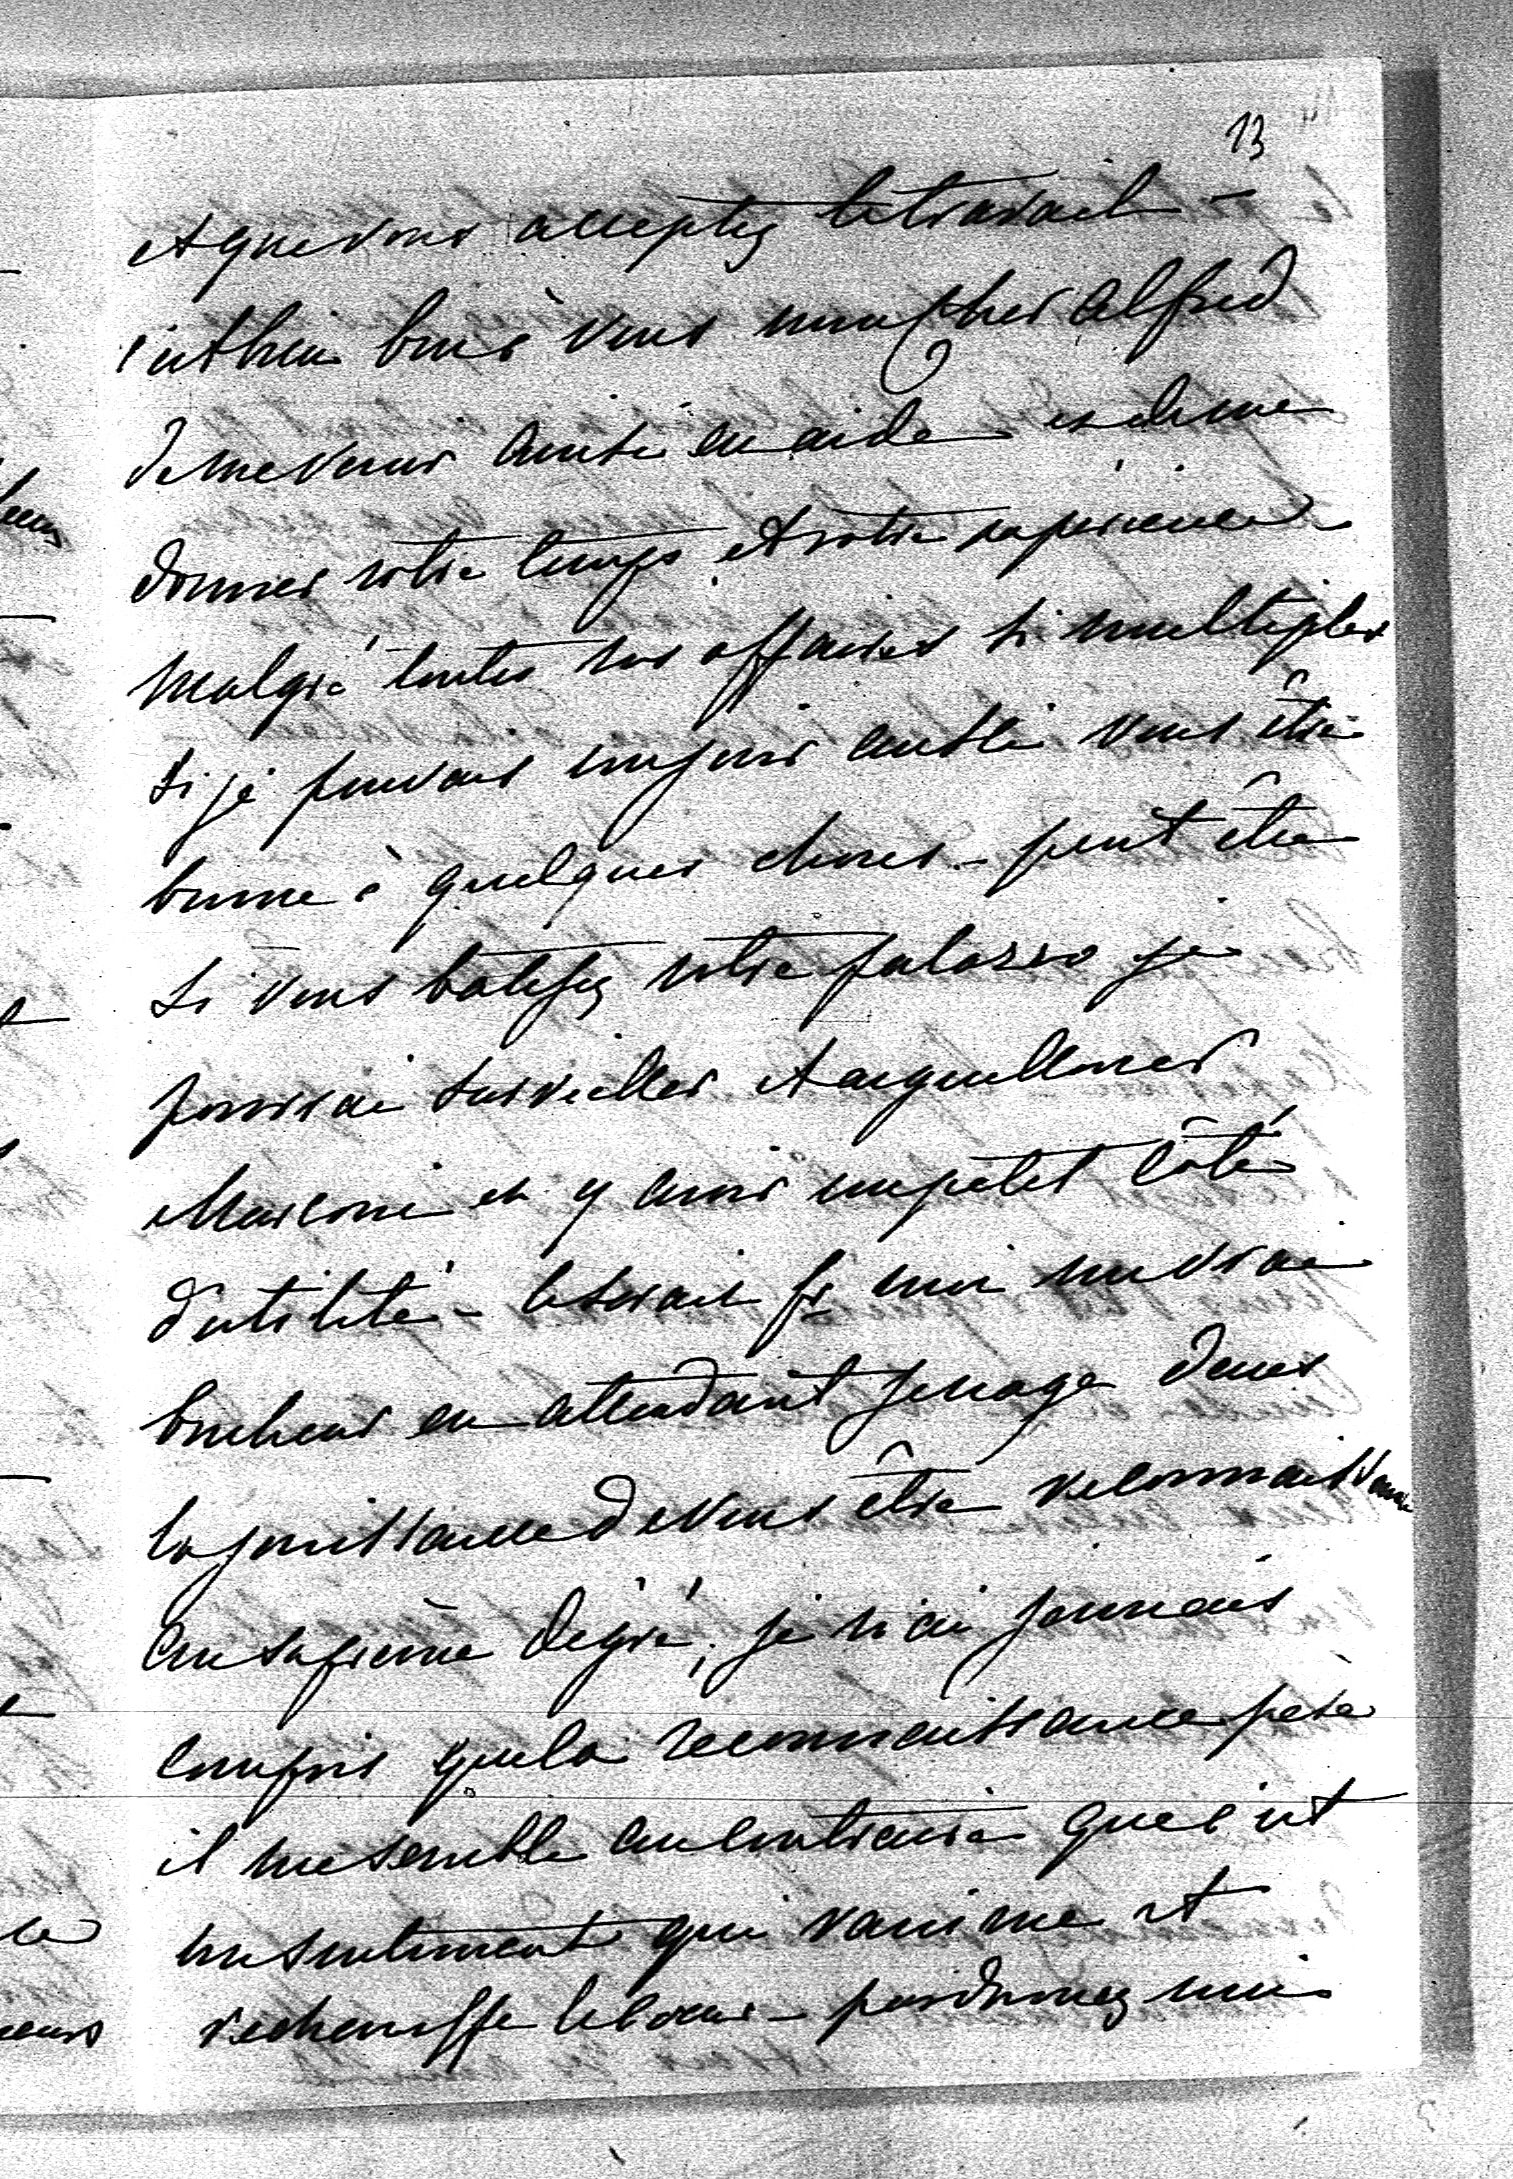 13
et que vous acceptez le travail -
c'est bien bon à vous mon cher Alfred
de me venir ainsi en aide et de me
donner votre temps et votre expérience
malgré toutes vos affaires si multiples
si je pouvais un jour aussi vous être
bonne à quelques choses - peut être
si vous batissez votre palazzo je
pourrai surveiller et aiguilloner
Marconi et y avoir un petit côté
d'utilité - ce serait pr moi un vrai
bonheur en attendant je nage dans
la jouissance de vous être reconnaissante
au suprème dégré, je n'ai jamais
compris que la reconnaissance pèse
il me semble au contraire que c'est
un sentiment qui ranime et
rechauffe le coeur - pardonnez moi